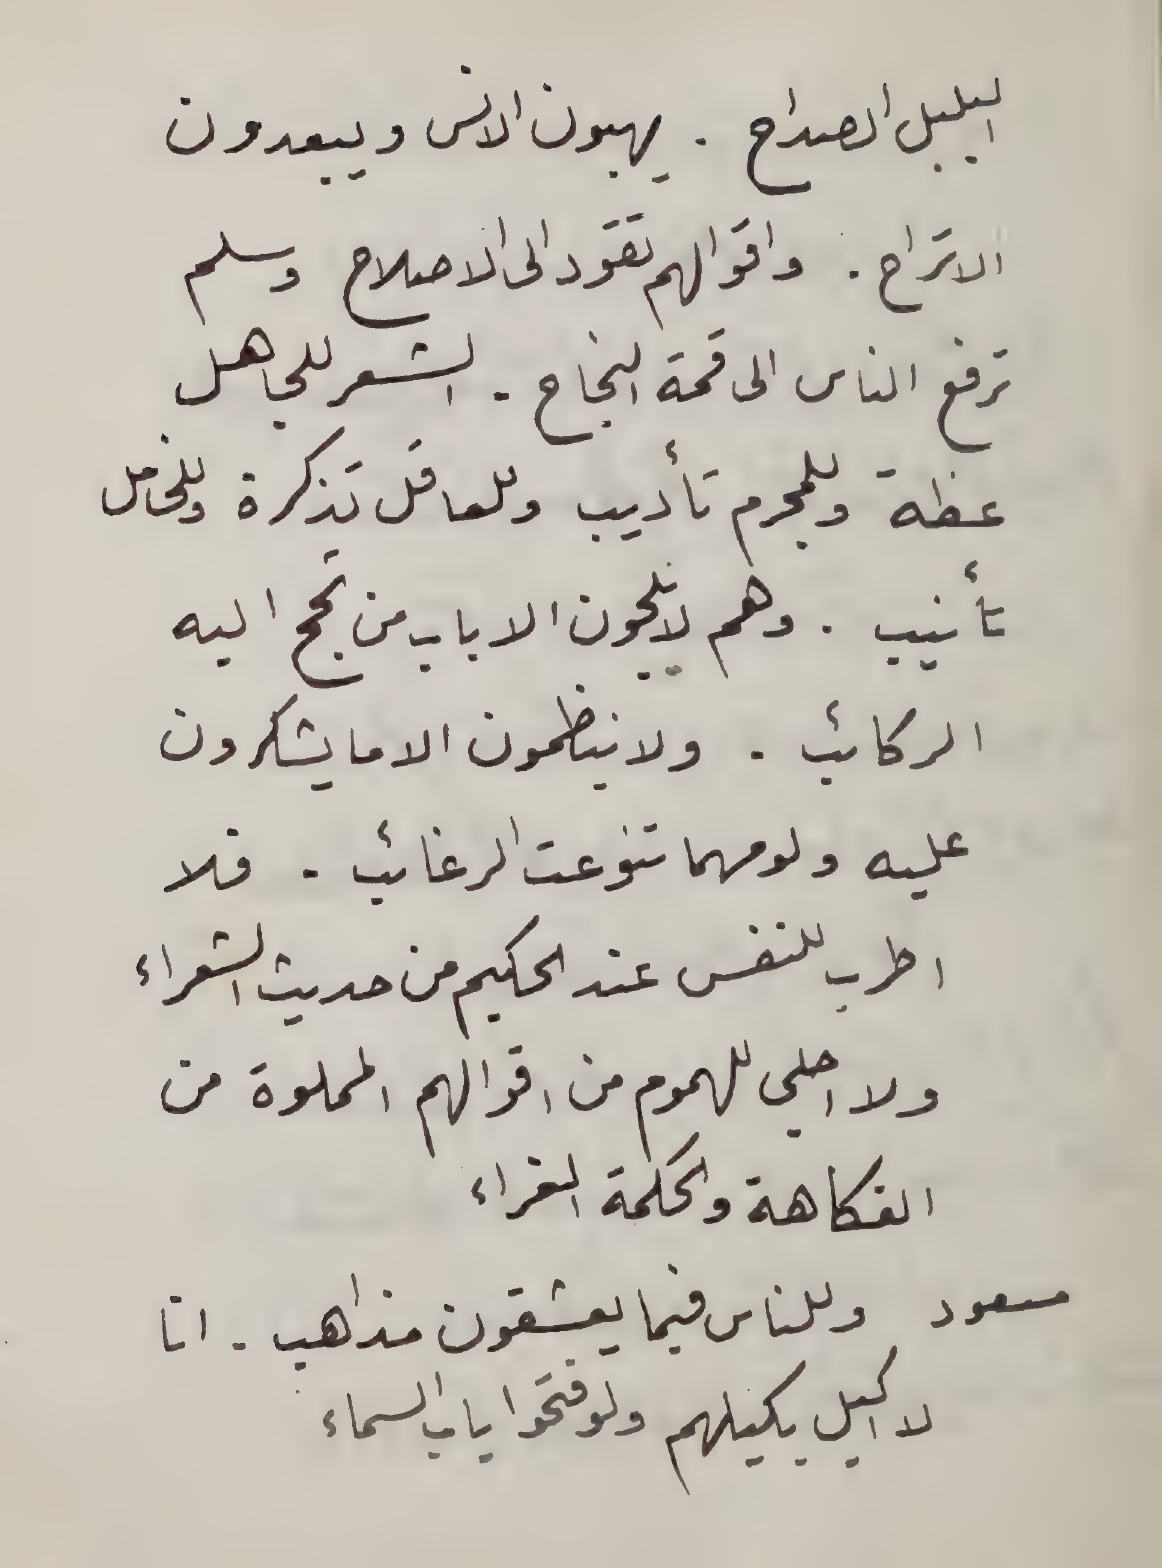 البلبل الصداح . يهبون الانس ويبعدون
الاتراح . واقوالهم تقود الى الاصلاح وسلم
ترفع الناس الى قمة النجاح . الشعر للجاهل
عظة وللمجرم تأديب وللعاقل تذكرة وللخامل
تأنيب . وهم لا يلجون الا باب من تحج اليه
الركائب . ولا ينظمون الا ما يشكرون
عليه ولو مهما تنوعت الرغائب . فلا
اطرب للنفس عند الحكيم من حديث الشعراء
ولا اجلى للهموم من اقوالهم المملوة من
الفكاهة والحكمة الغراء
مسعود وللناس فيما يعشقون مذاهب . انا
لا اكيل بكيلهم ولو فتحوا باب السماء